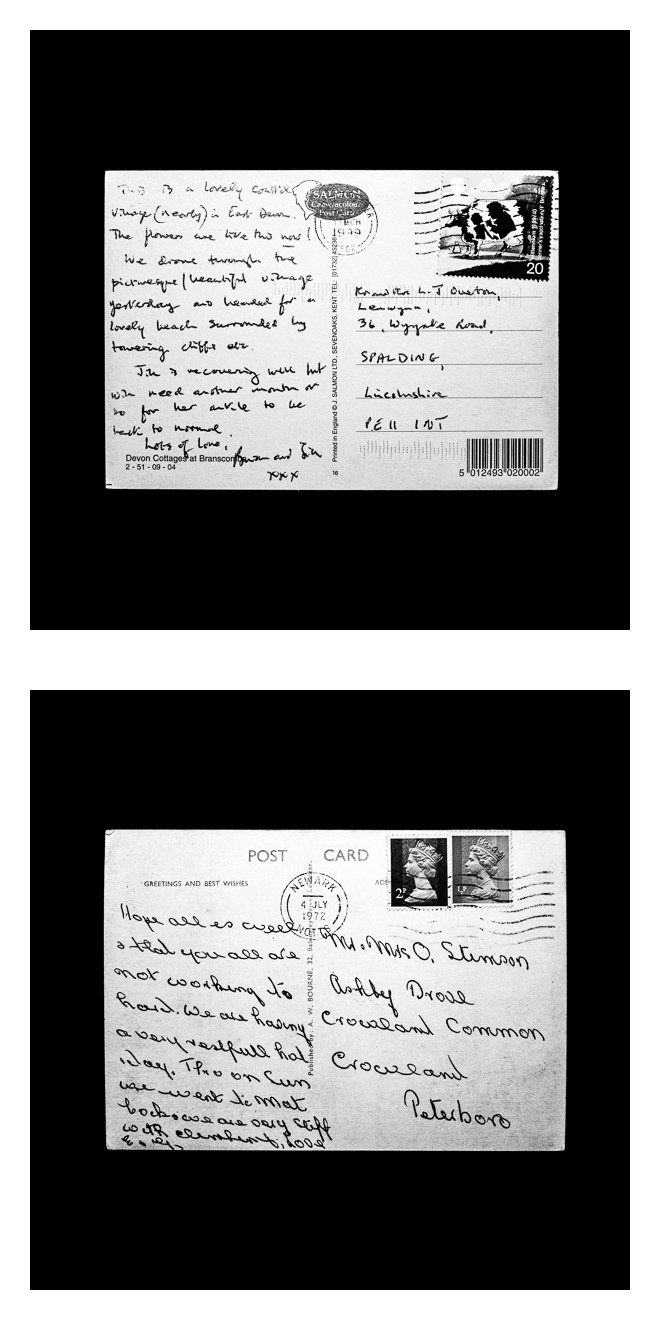 This is a lovely coastal
village (nearly) in East Devon.
The flowers are like this now!
We drove through the
picturesque/beautiful village
yesterday and headed for a
lovely beach surrounded by
towering cliffs etc.
Jill is recovering well but
will need another month or
so for her ankle to be
back to normal.
Lots of Love,
and Jill
xxx
Devon Cottages at Branscombe
2 - 51 - 09 - 04
SALMON
Cameracolour
Post Card
Printed in England © J. SALMON LTD., SEVENOAKS, KENT. TEL. [01732] 452381
16
1999
20
L. J. Overton,
36, Wygate Road,
SPALDING,
Lincolnshire
PE11 1NT
5 012493 020002
POST CARD
GREETINGS AND BEST WISHES
NEWARK
4 JLY
1972
NOTTS
2P
½P
Published by: A. W. BOURNE, 32,
Hope all is well
& that you all are
not working to
hard. We are having
a very restfull hol
iday. Tho on Sun
we went to Mat
lock & we are very stiff
with climbing, love
Mr. & Mrs O. Stimson
Ashby Drove
Crowland Common
Crowland
Peterboro